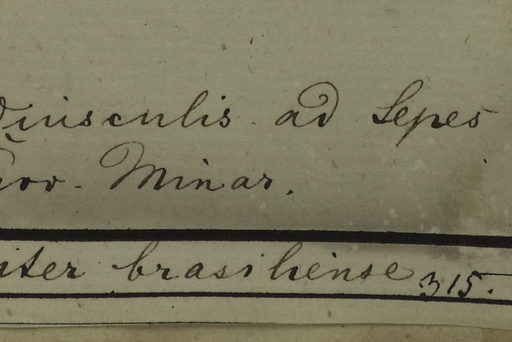 iusculis ad Sepes
Prov. Minar.
iter brasiliense 315.